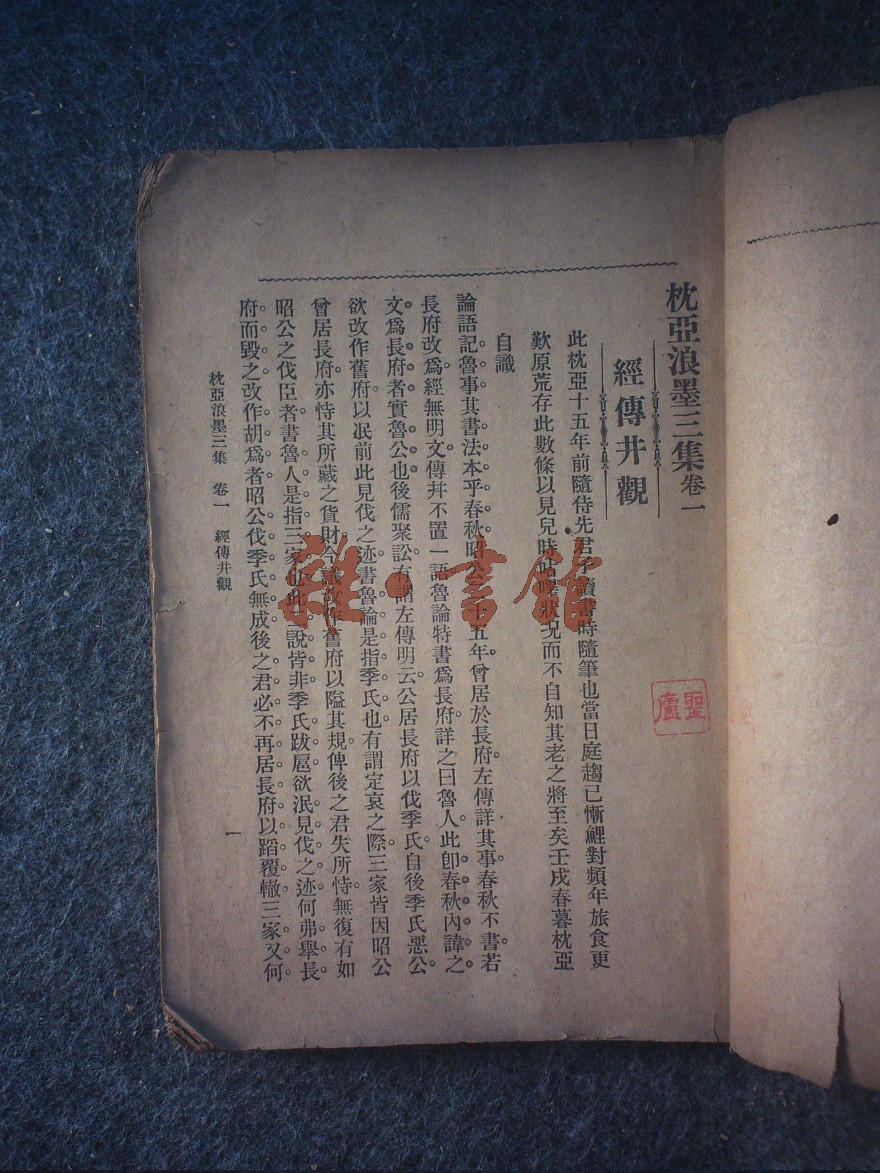 枕亞浪墨三集卷一
經傳井觀
此枕亞十五年前隨侍先君子讀書時隨筆也當日庭趨已慚鯉對頻年旅食更
歎原荒存此數條以見兒時呫嗶狀况而不自知其老之將至矣壬戌春暮枕亞
自識
論語記魯事其書法本乎春秋昭公二十五年曾居於長府左傳詳其事春秋不書若
長府改爲經無明文傳幷不置一語魯論特書爲長府詳之曰魯人此卽春秋內諱之
文爲長府者實魯公也後儒聚訟有謂左傳明云公居長府以伐季氏自後季氏惡公
欲改作舊府以泯前此見伐之迹書魯論是指季氏也有謂定哀之際三家皆因昭公
曾居長府亦恃其所藏之貨財今議改作舊府以隘其規俾後之君失所恃無復有如
昭公之伐臣者書魯人是指三家也此二說皆非季氏跋扈欲泯見伐之迹何弗舉長
府而毀之改作胡爲者昭公伐季氏無成後之君必不再居長府以蹈覆轍三家又何
枕亞浪墨三集 卷一 經傳井觀
一
聖盧
雜·書館